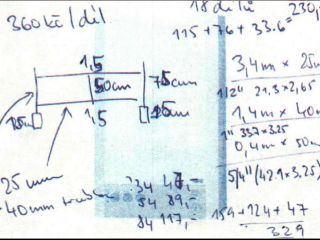 360kč/díl
18 dílů
230,
115 + 76 + 33.6 =
1,5
50cm
75cm
25cm
15cm
1,5
25 mm
40mm
3,4m × 25m
1/2" 21.3×2,65
1,4m × 40m
1" 33.7×3.25
0,4m × 50m
5/4" (42.9×3.25)
34 47,-
54 89,-
84 117,-
159 + 124 + 47
329